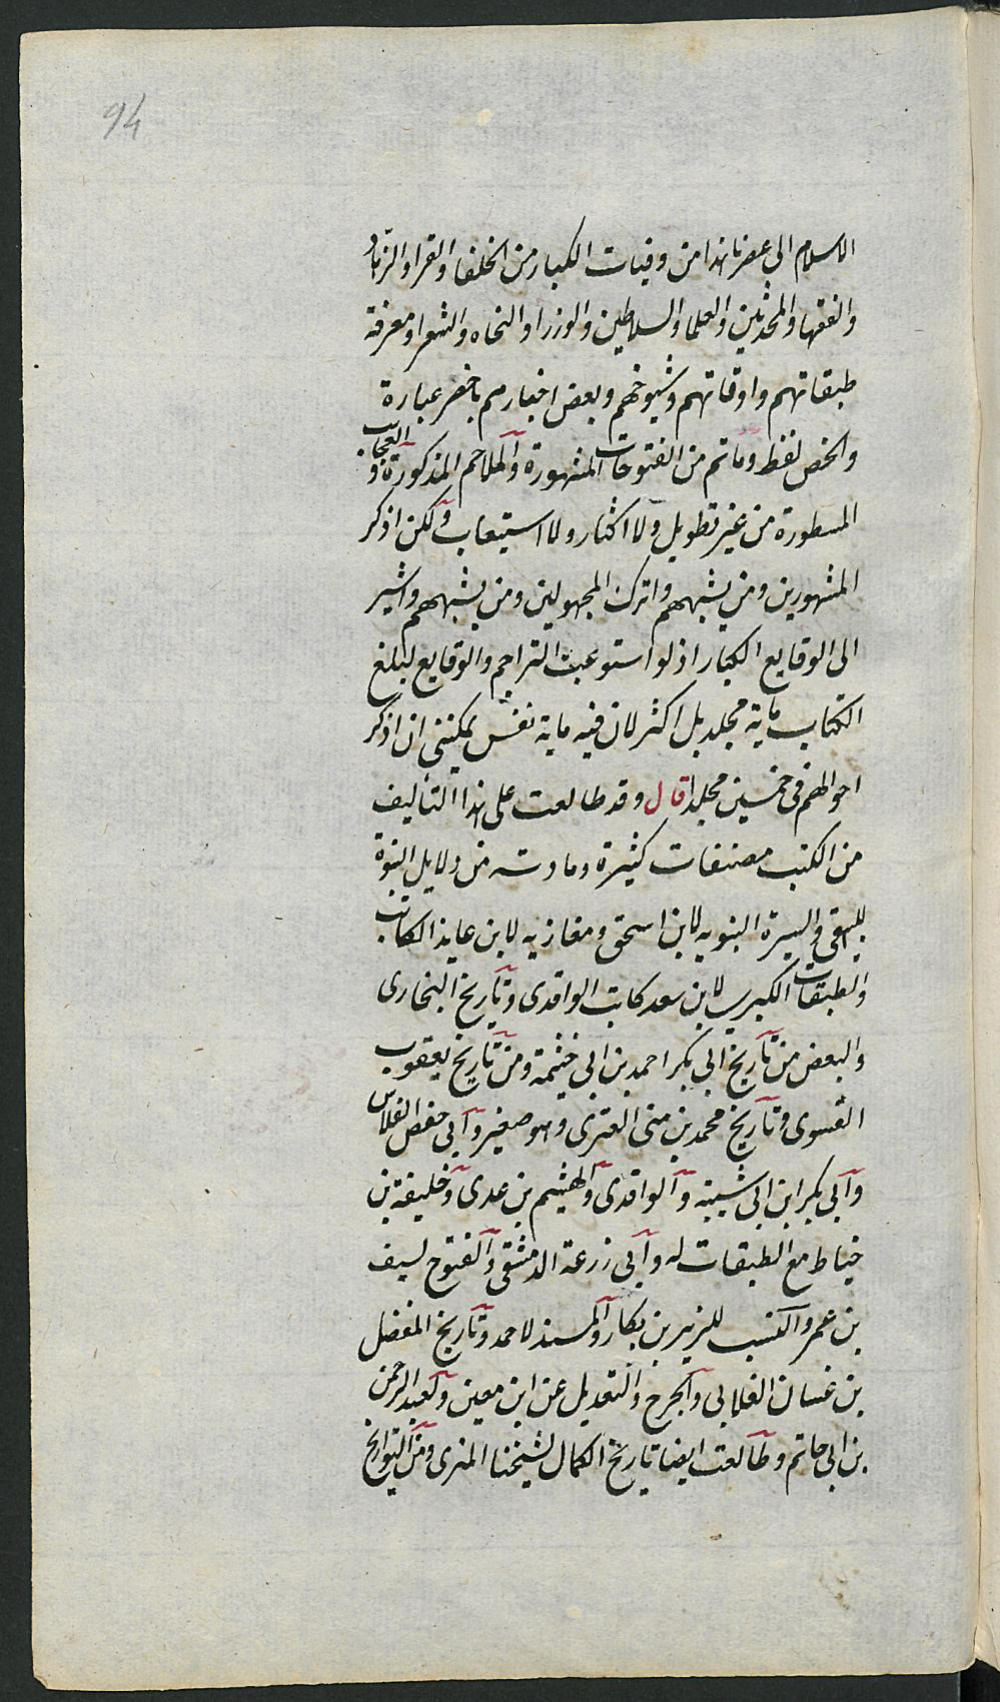 94
الاسلام الى عصرنا هذا من وفيات الكبار من الخلفا والقرا والزهاد
والفقها والمحدثين والعلما والسلاطين والوزرا والنحاه والشعرا ومعرفة
طبقاتهم واوقاتهم وشيوخهم وبعض اخبارهم باخصر عبارة
والخص لفظ وما تم من الفتوحات المشهورة والملاحم المذكورة والعجائب
المسطورة من غير تطويل ولا اكثار ولا استيعاب ولكن اذكر
المشهورين ومن يشبههم واترك المجهولين ومن يشبههم واشير
الى الوقايع الكبار اذ لو استوعبت التراجم والوقايع لبلغ
الكتاب ماية مجلد بل اكثر لان فيه ماية نفس يمكننى ان اذكر
احوالهم فى خمسين مجلدا قال وقد طالعت على هذا التأليف
من الكتب مصنفات كثيرة ومادته من دلايل النبوة
للبيهقى والسيرة النبويه لابن اسحق ومغازيه لابن عايذ الكاتب
والطبقات الكبرى لابن سعد كاتب الواقدى وتاريخ البخارى
والبعض من تاريخ ابى بكر احمد بن ابى خيثمة ومن تاريخ يعقوب
الفسوى وتاريخ محمد بن مثنى العنزى وهو صغير وابى حفص الفلاس
وابى بكر ابن ابى شيبة والواقدى والهيثم بن عدى وخليفة بن
خياط مع الطبقات له وابى زرعة الدمشقى والفتوح لسيف
بن عمر والنسب للزبير بن بكار والمسند لاحمد وتاريخ المفضل
بن غسان الغلابى والجرح والتعديل عن ابن معين ولعبد الرحمن
بن ابى حاتم وطالعت ايضا تاريخ الكمال لشيخنا المزى ومن التواريخ